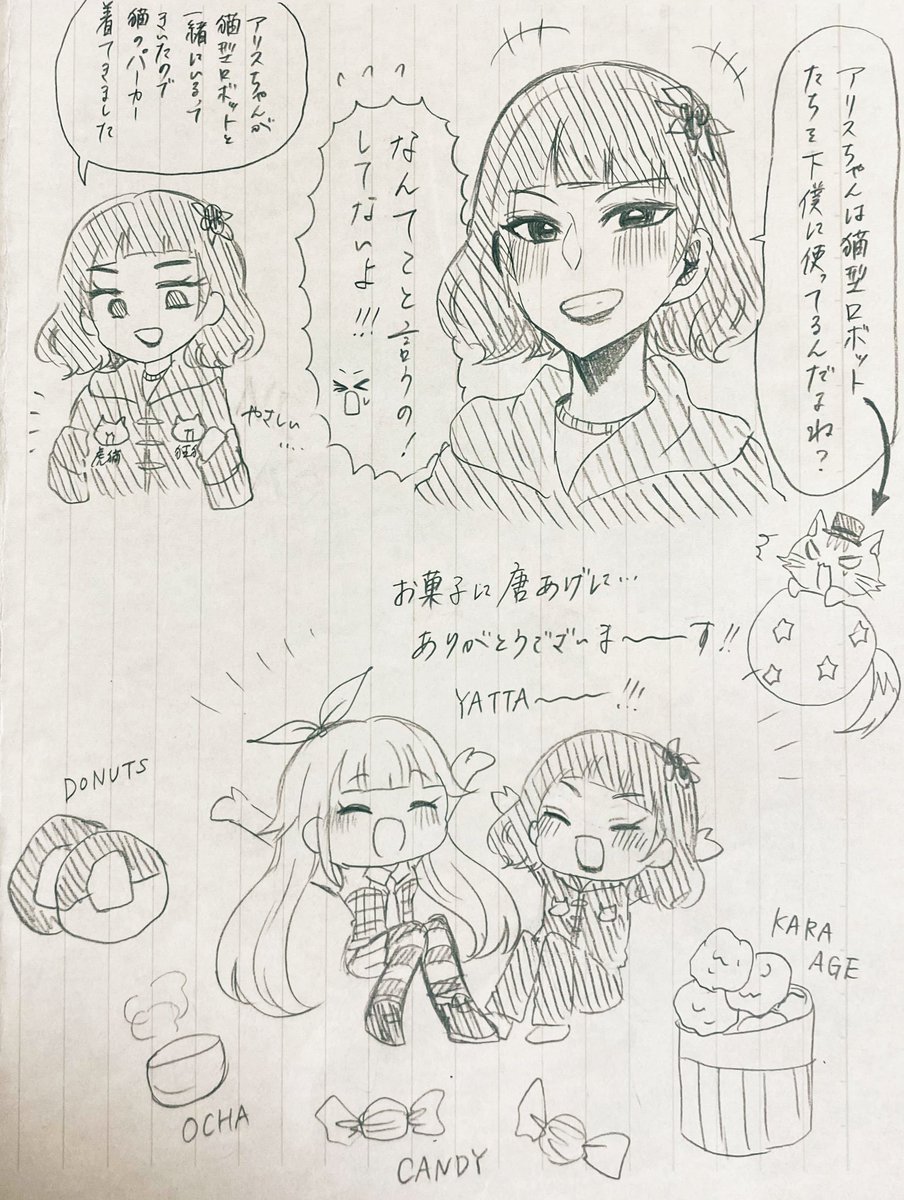 アリスちゃんは猫型ロボット
たちを下僕に使ってるんだよね?
なんてこと言うの!
してないよ!!!
アリスちゃんが
猫型ロボットと
一緒にいるって
きいたので
猫のパーカー
着てきました
やさしい…
虎猫
お菓子に唐あげに…
ありがとうございま〜〜す!!
YATTA〜〜!!!
DONUTS
KARA
AGE
OCHA
CANDY